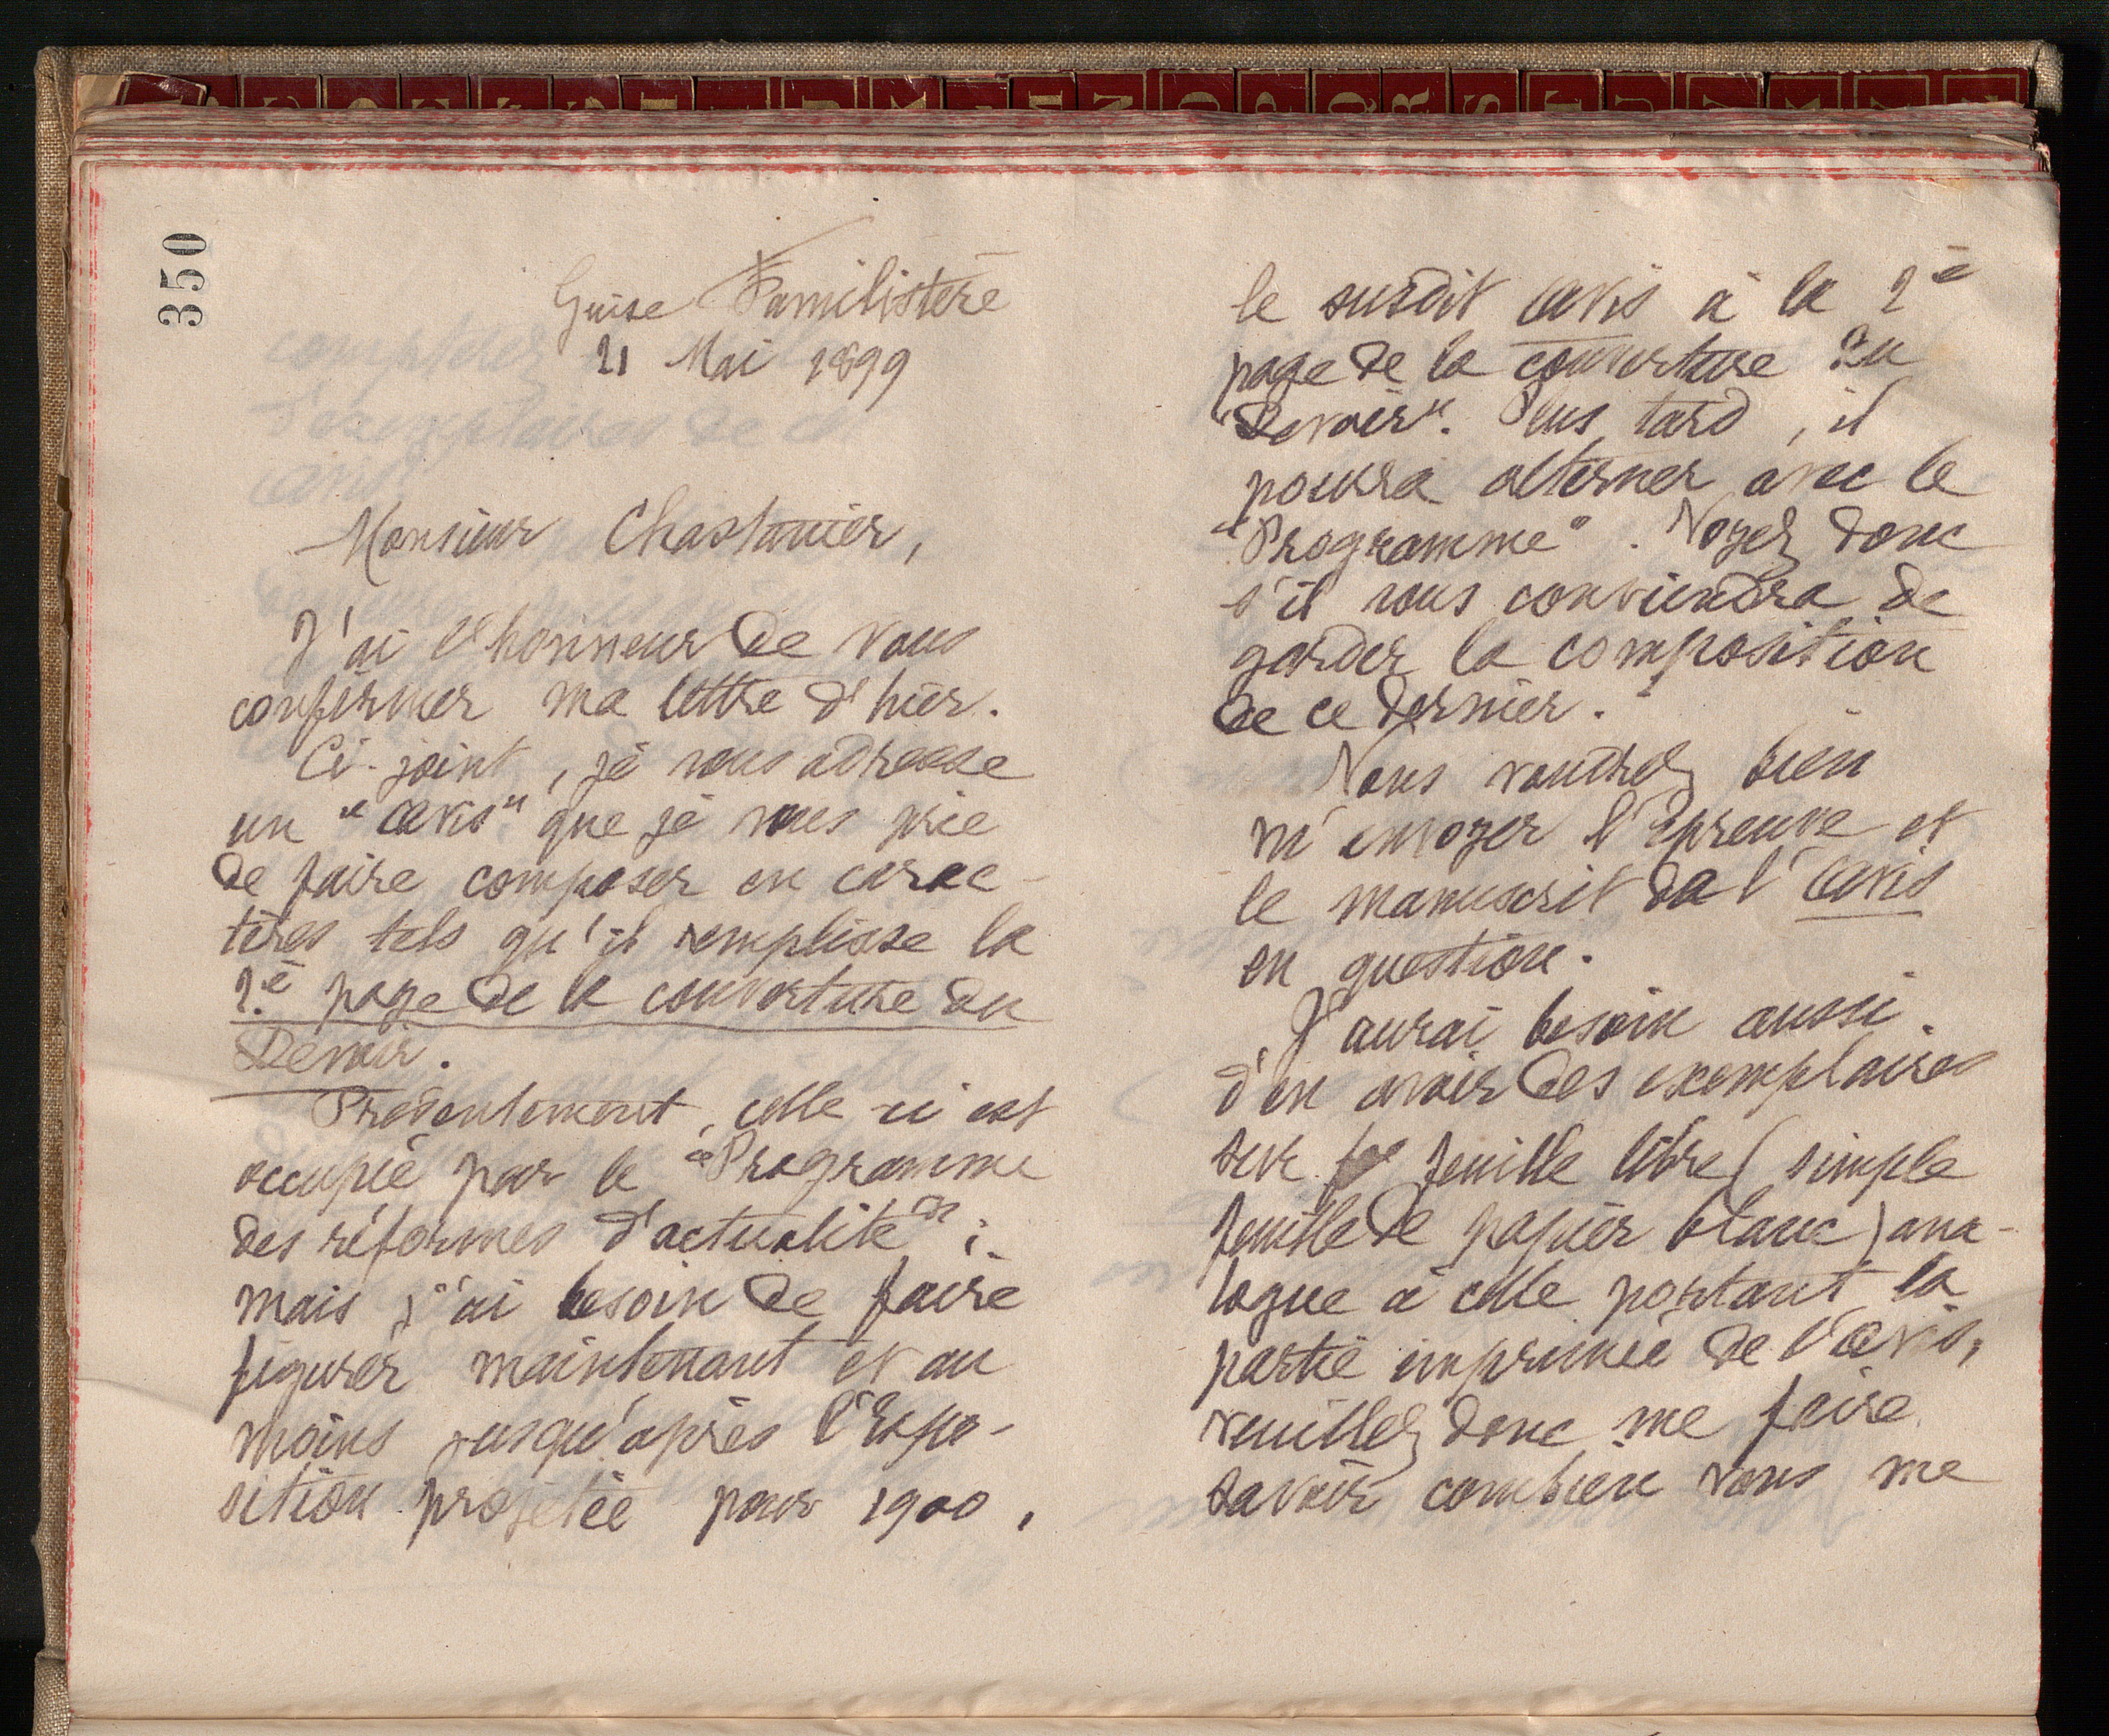 350
Guise Familistère
21 Mai 1899
Monsieur Chastanier,
J'ai l'honneur de vous
confirmer ma lettre d'hier.
Ci-joint, je vous adresse
un "avis" que je vous prie
de faire composer en carac-
tères tels qu'il remplisse la
2e page de la couverture du
Devoir.
Présentement, celle-ci est
occupée par le "Programme
des réformes d'actualité";
mais j'ai besoin de faire
figurer maintenant et au
moins jusqu'après l'Expo-
sition projetée pour 1900,
le susdit avis à la 2e
page de la couverture du
"Devoir". Plus tard, il
pourra alterner avec le
"Programme". Voyez donc
s'il vous conviendra de
garder la composition
de ce dernier.
Vous voudrez bien
m'envoyer l'épreuve et
le manuscrit de l'avis
en question.
J'aurai besoin aussi
d'en avoir des exemplaires
sur feuille libre (simple
feuille de papier blanc) ana-
logue à celle portant la
partie imprimée de l'avis,
veuillez donc me faire
savoir combien vous me